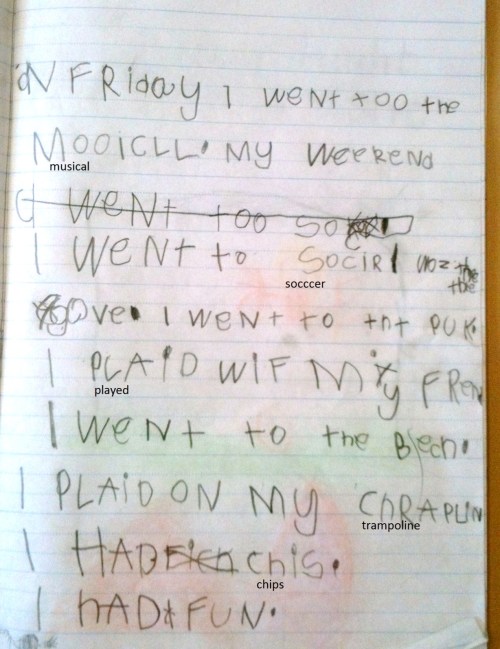 ON FRiday I weNt too the
MOOiCLL. MY weekend
musical
I weNt too so
I weNt to SOCiR I woz the
the
socccer
Over. I went to tht PUK.
I PLAiD WiF My FREN
played
I weNt to the Bech.
I PLAiD ON My ChRAPLiN
trampoline
I HAD chis.
chips
I hAD FUN.